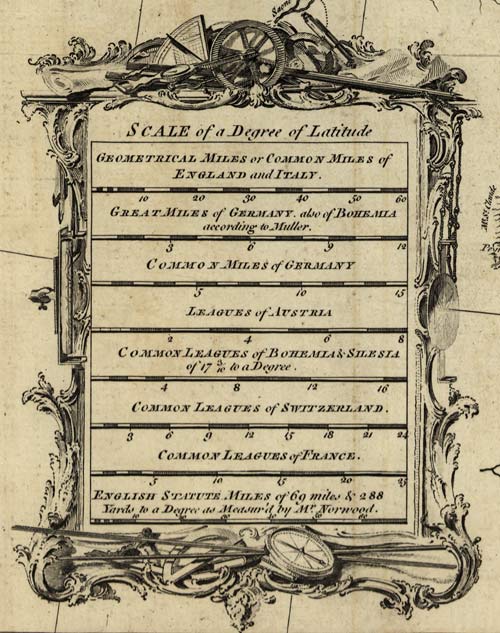 Saone
SCALE of a Degree of Latitude
GEOMETRICAL MILES or COMMON MILES of
ENGLAND and ITALY.
10 20 30 40 50 60
GREAT MILES of GERMANY. also of BOHEMIA
according to Muller.
3 6 9 12
COMMON MILES of GERMANY
5 10 15
LEAGUES of AUSTRIA
2 4 6 8
COMMON LEAGUES of BOHEMIA & SILESIA
of 17 3/10 to a Degree.
4 8 12 16
COMMON LEAGUES of SWITZERLAND.
3 6 9 12 15 18 21 24
COMMON LEAGUES of FRANCE.
5 10 15 20 25
ENGLISH STATUTE MILES of 69 miles & 288
Yards to a Degree as Measur'd by Mr. Norwood.